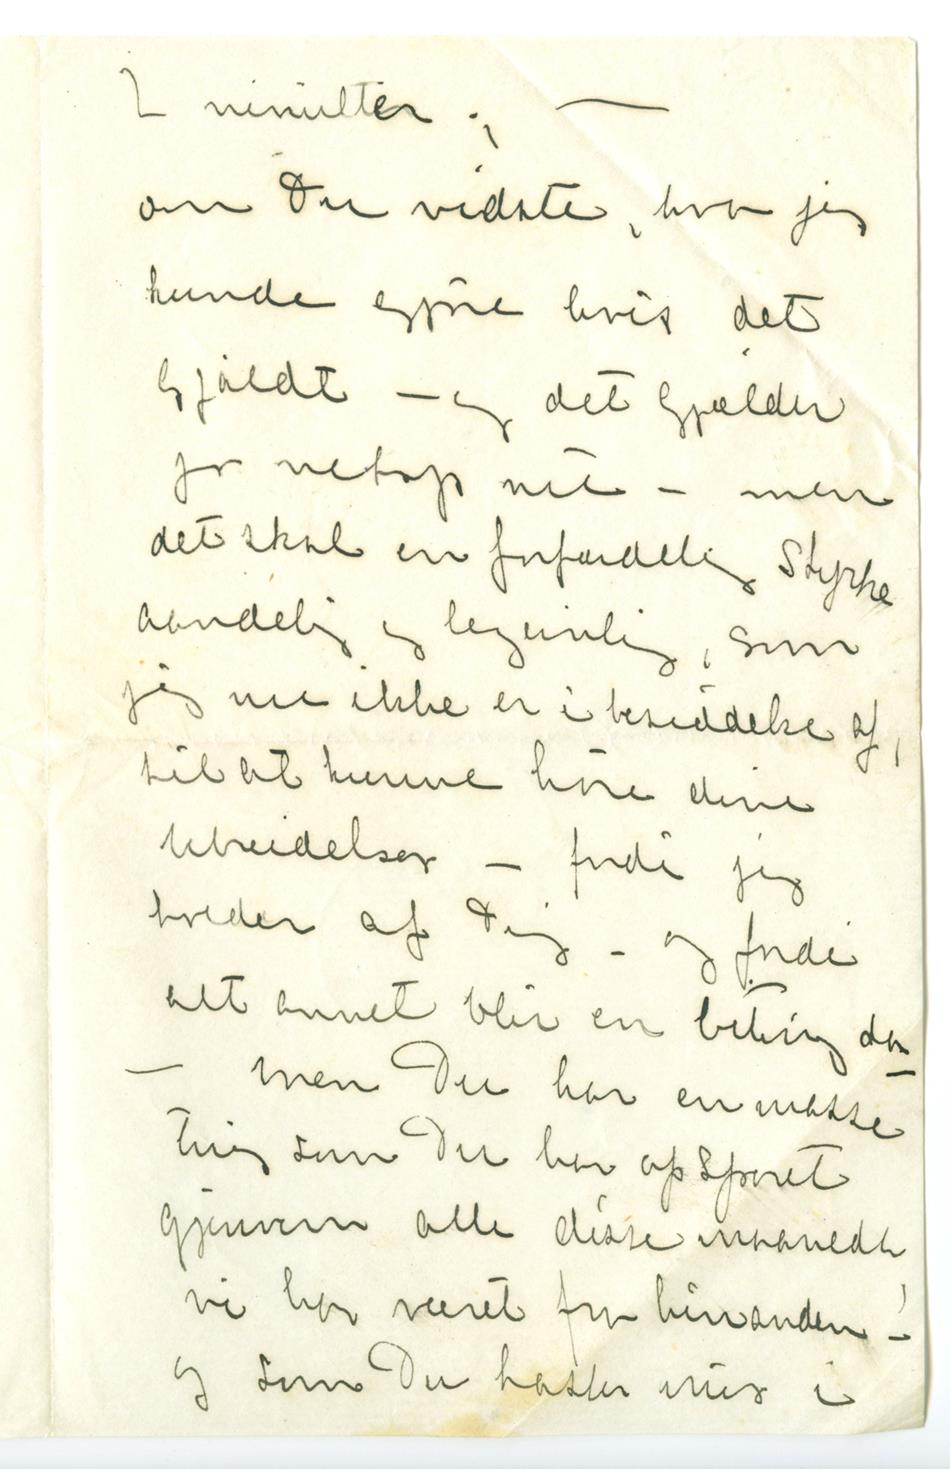 2 minutter. –
om Du vidste, hva jeg
kunde gjøre hvis det
gjaldt – og det gjælder
jo netop nu – men
det skal en forfærdelig Styrke
aandelig og legemlig, som
jeg nu ikke er i besiddelse af,
til at kunne høre dine
Ubreidelser – fordi jeg
holder af Dig – og fordi
alt annet blir en beting da
– men Du har en masse
ting som Du har opsporet
gjennem alle disse maaneder
vi har været fra hinanden –
og som Du kaster mig i